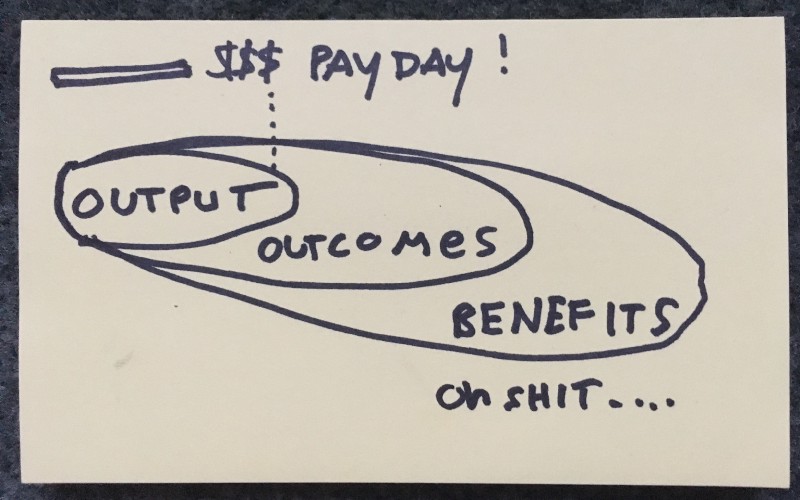 $$$ PAYDAY!
OUTPUT
OUTCOMES
BENEFITS
Oh SHIT....